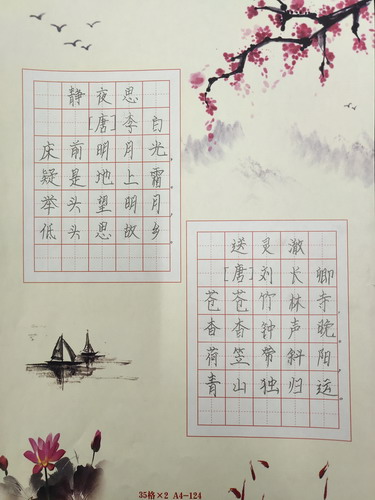 静夜思
[唐]李白
床前明月光，
疑是地上霜。
举头望明月，
低头思故乡。
送灵澈
[唐]刘长卿
苍苍竹林寺，
杳杳钟声晚。
荷笠带斜阳，
青山独归远。
35格×2 A4-124